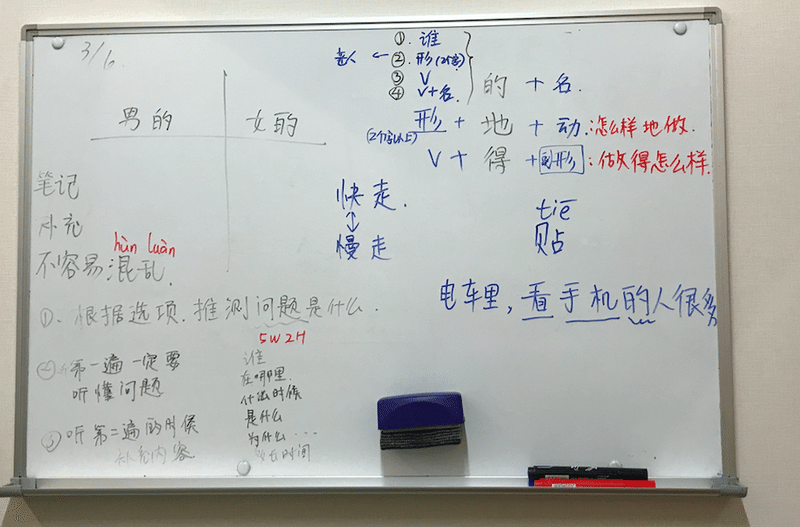 3/6
男的 女的
笔记
补充
hùn luàn
不容易混乱.
①、根据选项.推测问题是什么.
5W2H
②. 第一遍一定要
听懂问题
③ 听第二遍的时候
补充内容
谁
在哪里.
什么时候
是什么
为什么...
多长时间
①. 谁
②. 形(2个字)
③ V
④ V+名.
的 + 名.
形 + 地 + 动:怎么样地做.
(2个字以上)
V + 得 + 副形:做得怎么样.
快走.
↕
慢走
tiē
贴
电车里,看手机的人很多